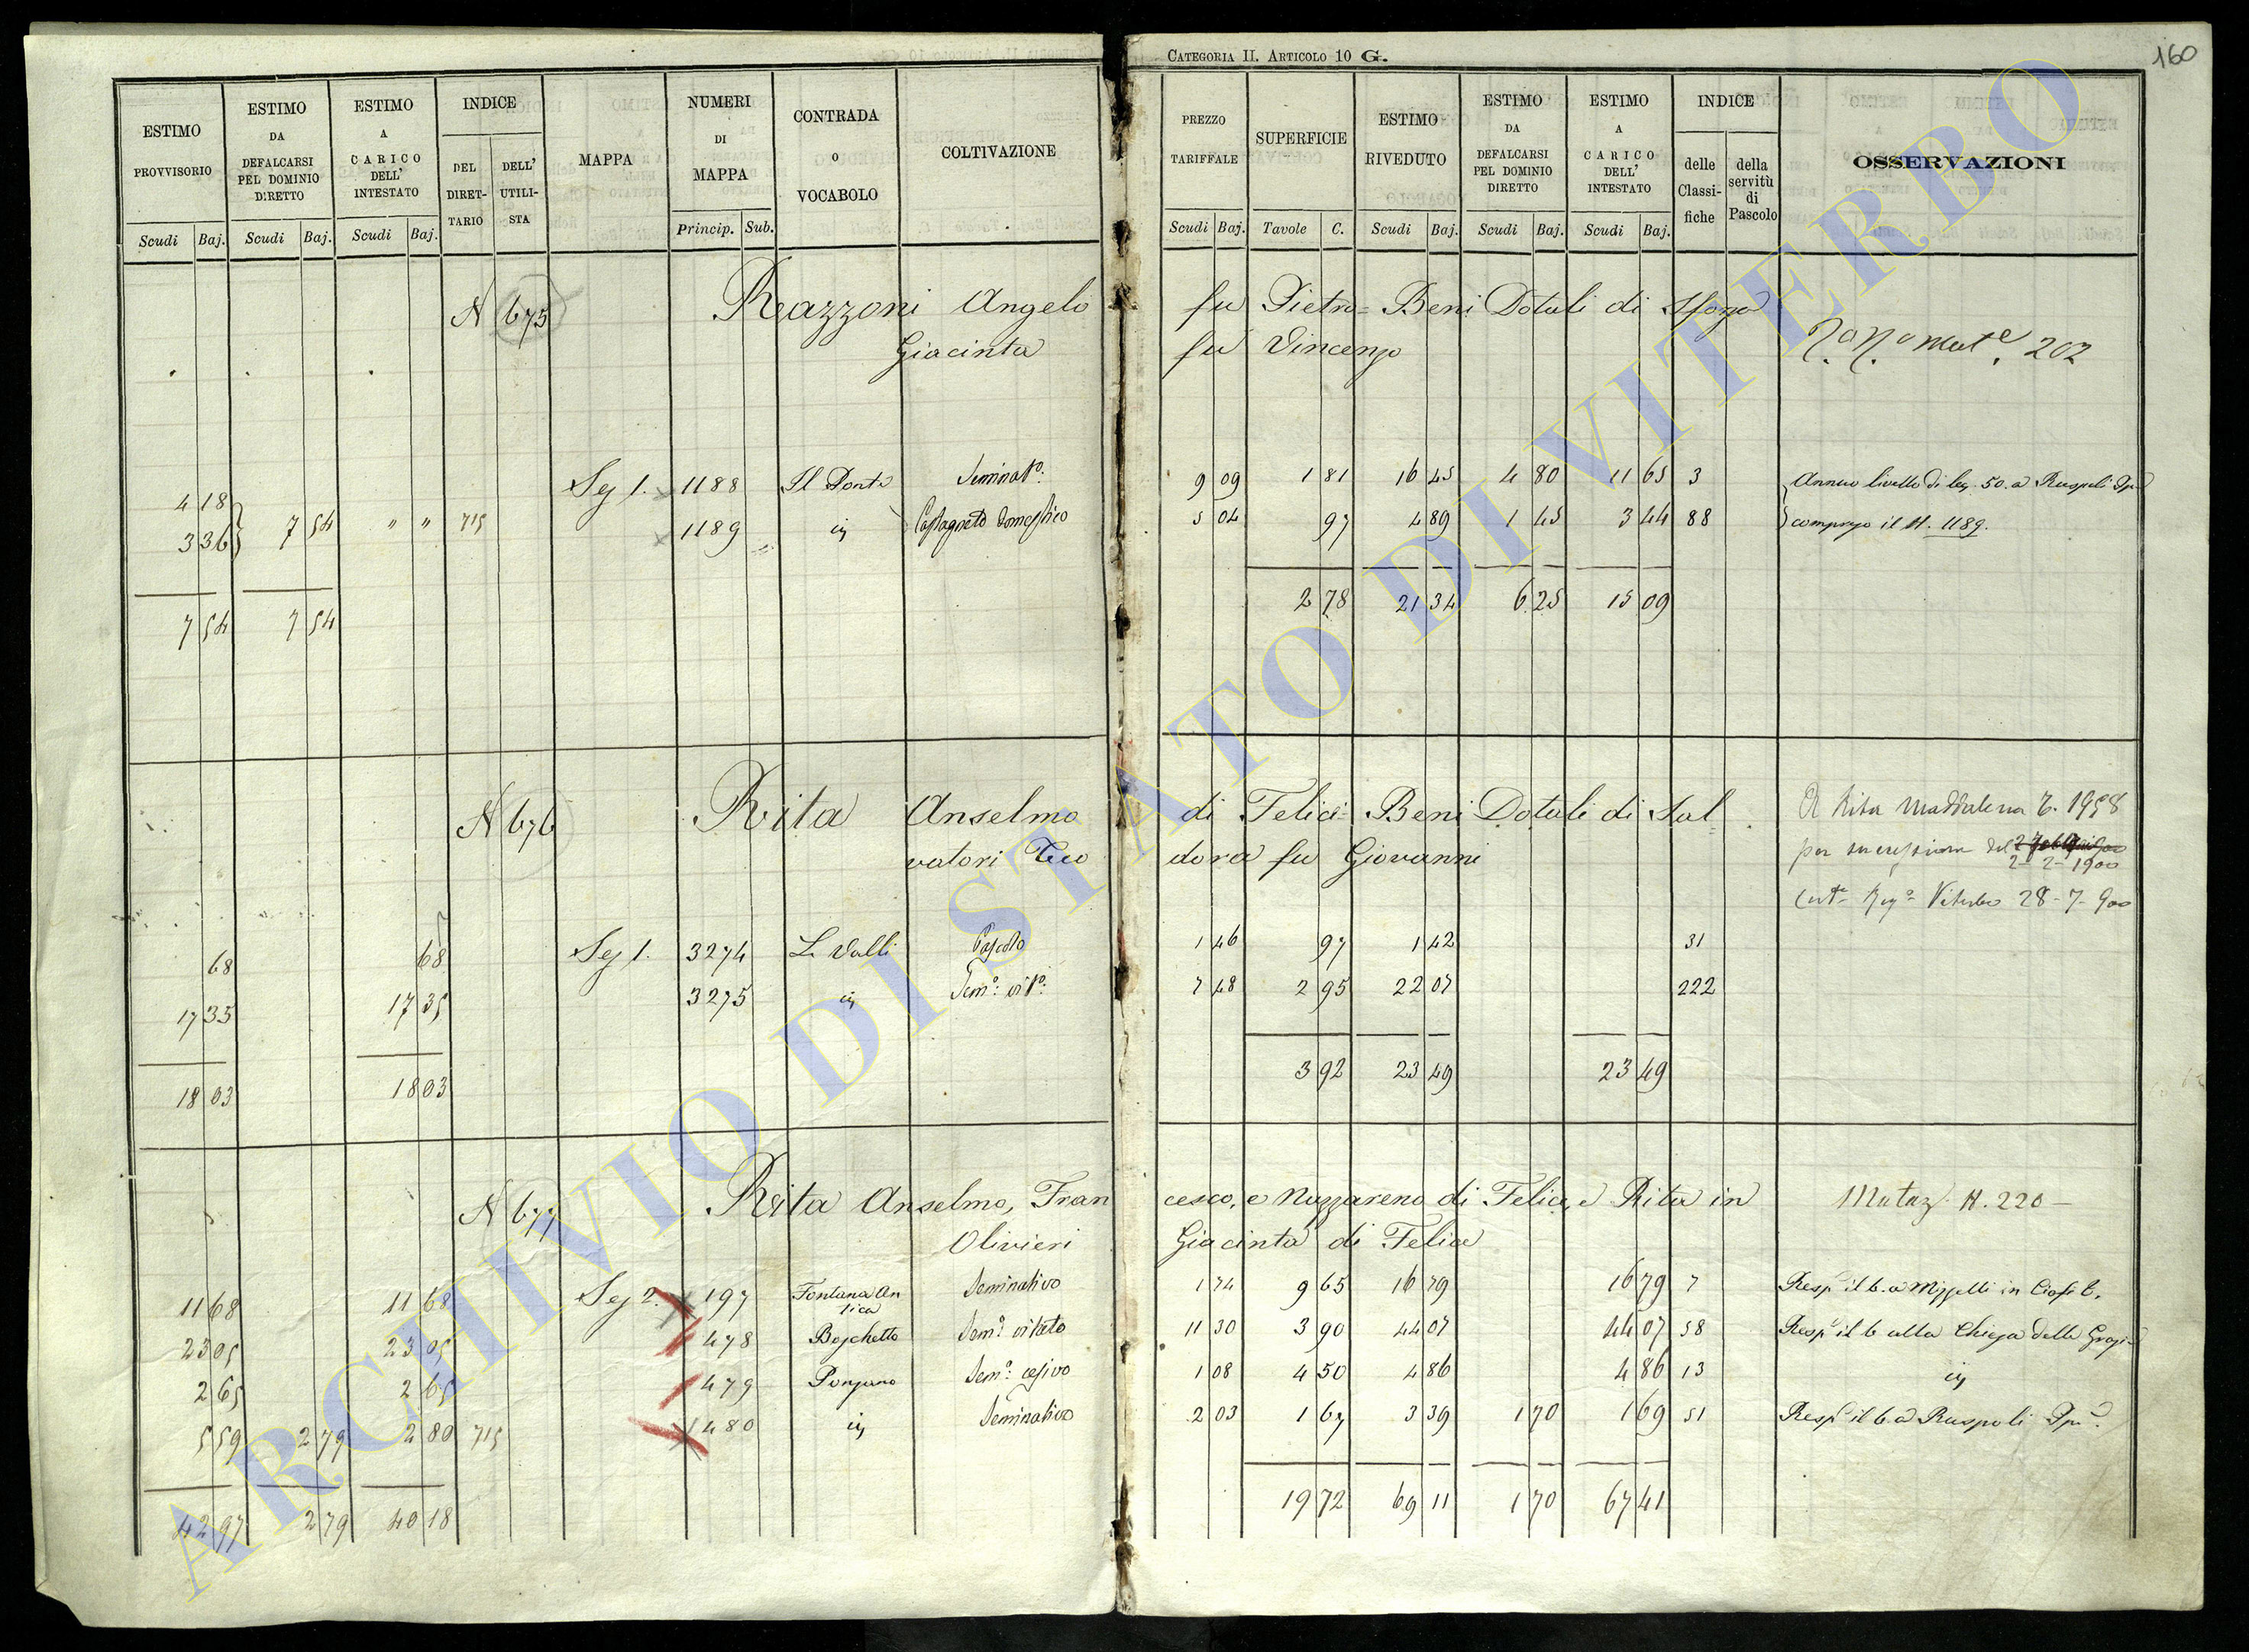 CATEGORIA II. ARTICOLO 10 G.
160
ESTIMO PROVVISORIO
ESTIMO DA DEFALCARSI PEL DOMINIO DIRETTO
ESTIMO A CARICO DELL' INTESTATO
INDICE
DEL DIRETTARIO
DELL' UTILISTA
MAPPA
NUMERI DI MAPPA
CONTRADA O VOCABOLO
COLTIVAZIONE
PREZZO TARIFFALE
SUPERFICIE
ESTIMO RIVEDUTO
ESTIMO DA DEFALCARSI PEL DOMINIO DIRETTO
ESTIMO A CARICO DELL' INTESTATO
INDICE
delle Classifiche
della servitù di Pascolo
OSSERVAZIONI
Scudi Baj. Scudi Baj. Scudi Baj. Princip. Sub.
Scudi Baj. Tavole C. Scudi Baj. Scudi Baj. Scudi Baj.
N 675 Reazzoni Angelo fu Pietro = Beni Dotali di
Giacinta fu Vincenzo
202
4 18 Sez 1. 1188 Il Ponte Seminat.o 9 09 1 81 16 45 4 80 11 65 3 Annuo livello di 50. a Ruspoli
3 36 7 54 " " 715 1189 Castagneto domestico 5 04 97 4 89 1 45 3 44 88 compreso il N. 1189.
2 78 21 34 6 25 15 09
7 54 7 54
N 676 Rita Anselmo di Felice = Beni Dotali di Sal
vatori Teodora fu Giovanni
A Rita Maddalena
per successione del
2-2-1900
Viterbo 28-7-900
68 68 Sez 1. 3274 Le Valli Pascolo 1 46 97 1 42 31
17 35 17 35 3275 Sem.o vit.o 7 48 2 95 22 07 222
18 03 18 03 3 92 23 49 23 49
N 677 Rita Anselmo, Francesco, e Nazzareno di Felice, e Rita in
Olivieri Giacinta di Felice
Mutaz. N. 220 -
11 68 11 68 Sez 2. 197 Fontana Antica Seminativo 1 74 9 65 16 79 16 79 7
23 05 23 05 478 Boschetto Sem.o vitato 11 30 3 90 44 07 44 07 58 Resp. il 6 alla Chiesa delle Grazie
2 65 2 65 479 Ponzano Sem.o 1 08 4 50 4 86 4 86 13
5 59 2 79 2 80 715 480 Seminativo 2 03 1 67 3 39 1 70 1 69 51 Resp. il 6 a Ruspoli
42 97 2 79 40 18 19 72 69 11 1 70 67 41
ARCHIVIO DI STATO DI VITERBO